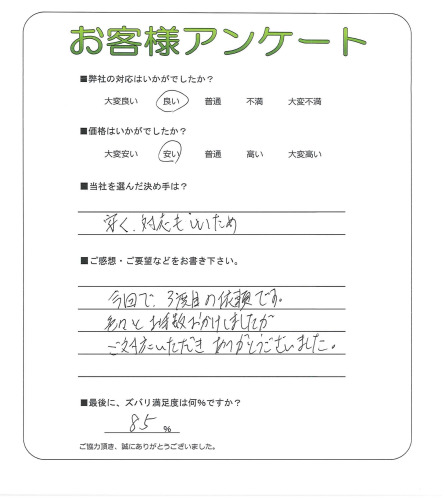 お客様アンケート
■弊社の対応はいかがでしたか？
大変良い 良い 普通 不満 大変不満
■価格はいかがでしたか？
大変安い 安い 普通 高い 大変高い
■当社を選んだ決め手は？
安く、対応もいいため
■ご感想・ご要望などをお書き下さい。
今回で、3度目の依頼です。
色々とお手数おかけしましたが
ご対応いただきありがとうございました。
■最後に、ズバリ満足度は何%ですか？
85 %
ご協力頂き、誠にありがとうございました。